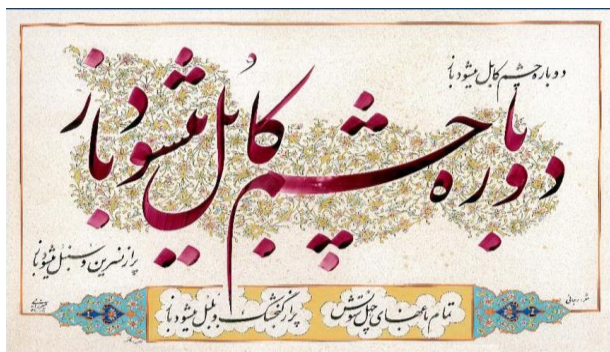 دوباره چشم کابل میشود باز
دوباره چشم کابل میشود باز
پر از نسرین و سنبل میشود باز
تمام باغهای چهل ستونش
پر از گنجشک و بلبل میشود باز